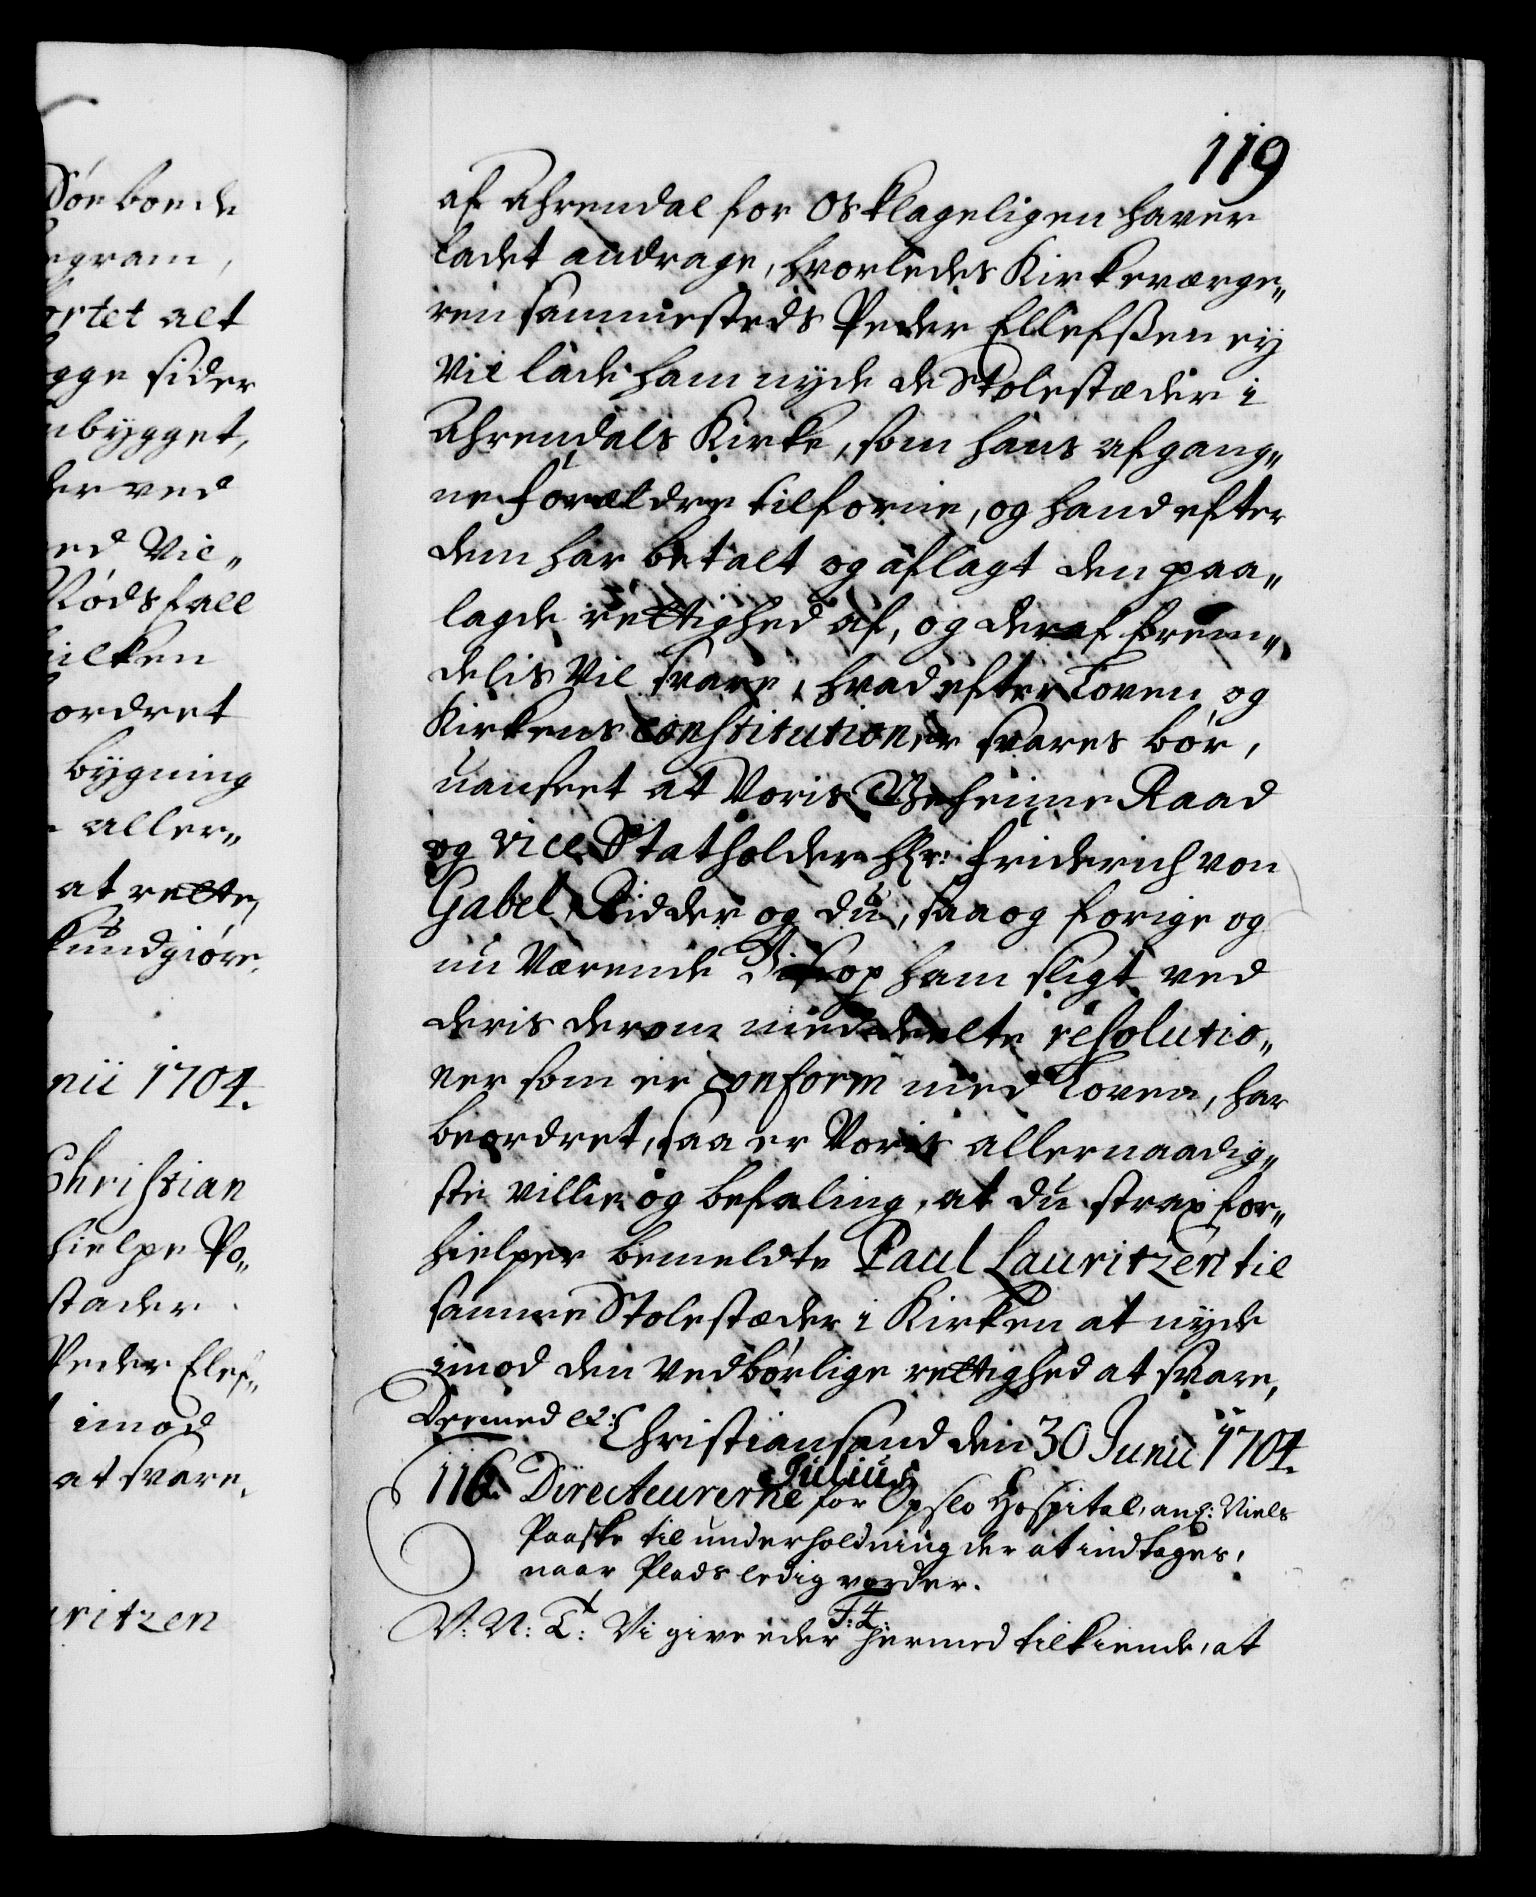 119
af Ahrendal for Os klageligen haver
ladet andrage, hvorledes Kirkeværge„
ren sammesteds Peder Ellefssen ey
vil lade ham nyde de Stolestæder i
Ahrendals Kirke, som hans afgang„
ne Forældre tilforne, og hand efter
dem har betalt og aflagt den paa„
lagde rettighed af, og deraf frem„
delis vil svare, hvad efter Loven og
Kirkens constitutioner svares bør,
uanseet at Voris Geheime Raad
og vice Statholder Hr: Friderich von
Gabel, Ridder og du, saa og forige og
nu Værende Biscop ham sligt ved
deris derom meddeelte resolutio„
ner som er conform med Loven, har
beordret, saa er Voris allernaadig„
ste villie og befaling, at du strax for„
hielper bemeldte Paul Lauritzen til
samme Stolestæder i Kirken at nyde
imod den Vedbørlige rettighed at svare,
Dermed etc: Christiansand den 30 Junii 1704.
Julius
116. Directeurerne for Opslo Hospital, anl: Niels
Paaske til underholdning der at indtages,
naar Plads ledig vorder.
F: 4.
V: N: T: Vi give eder hermed tilkiende, at
Sønboende
egram,
ortet alt
gge sider
nbygget,
der ved
ed Vil„
Nødsfall
ilken
ordret
bygning
aller„
at rette,
kundgiøre.
nii 1704.
Christian
hielpe Po„
stader
Peder Elef„
imod
at svare.
uritzen